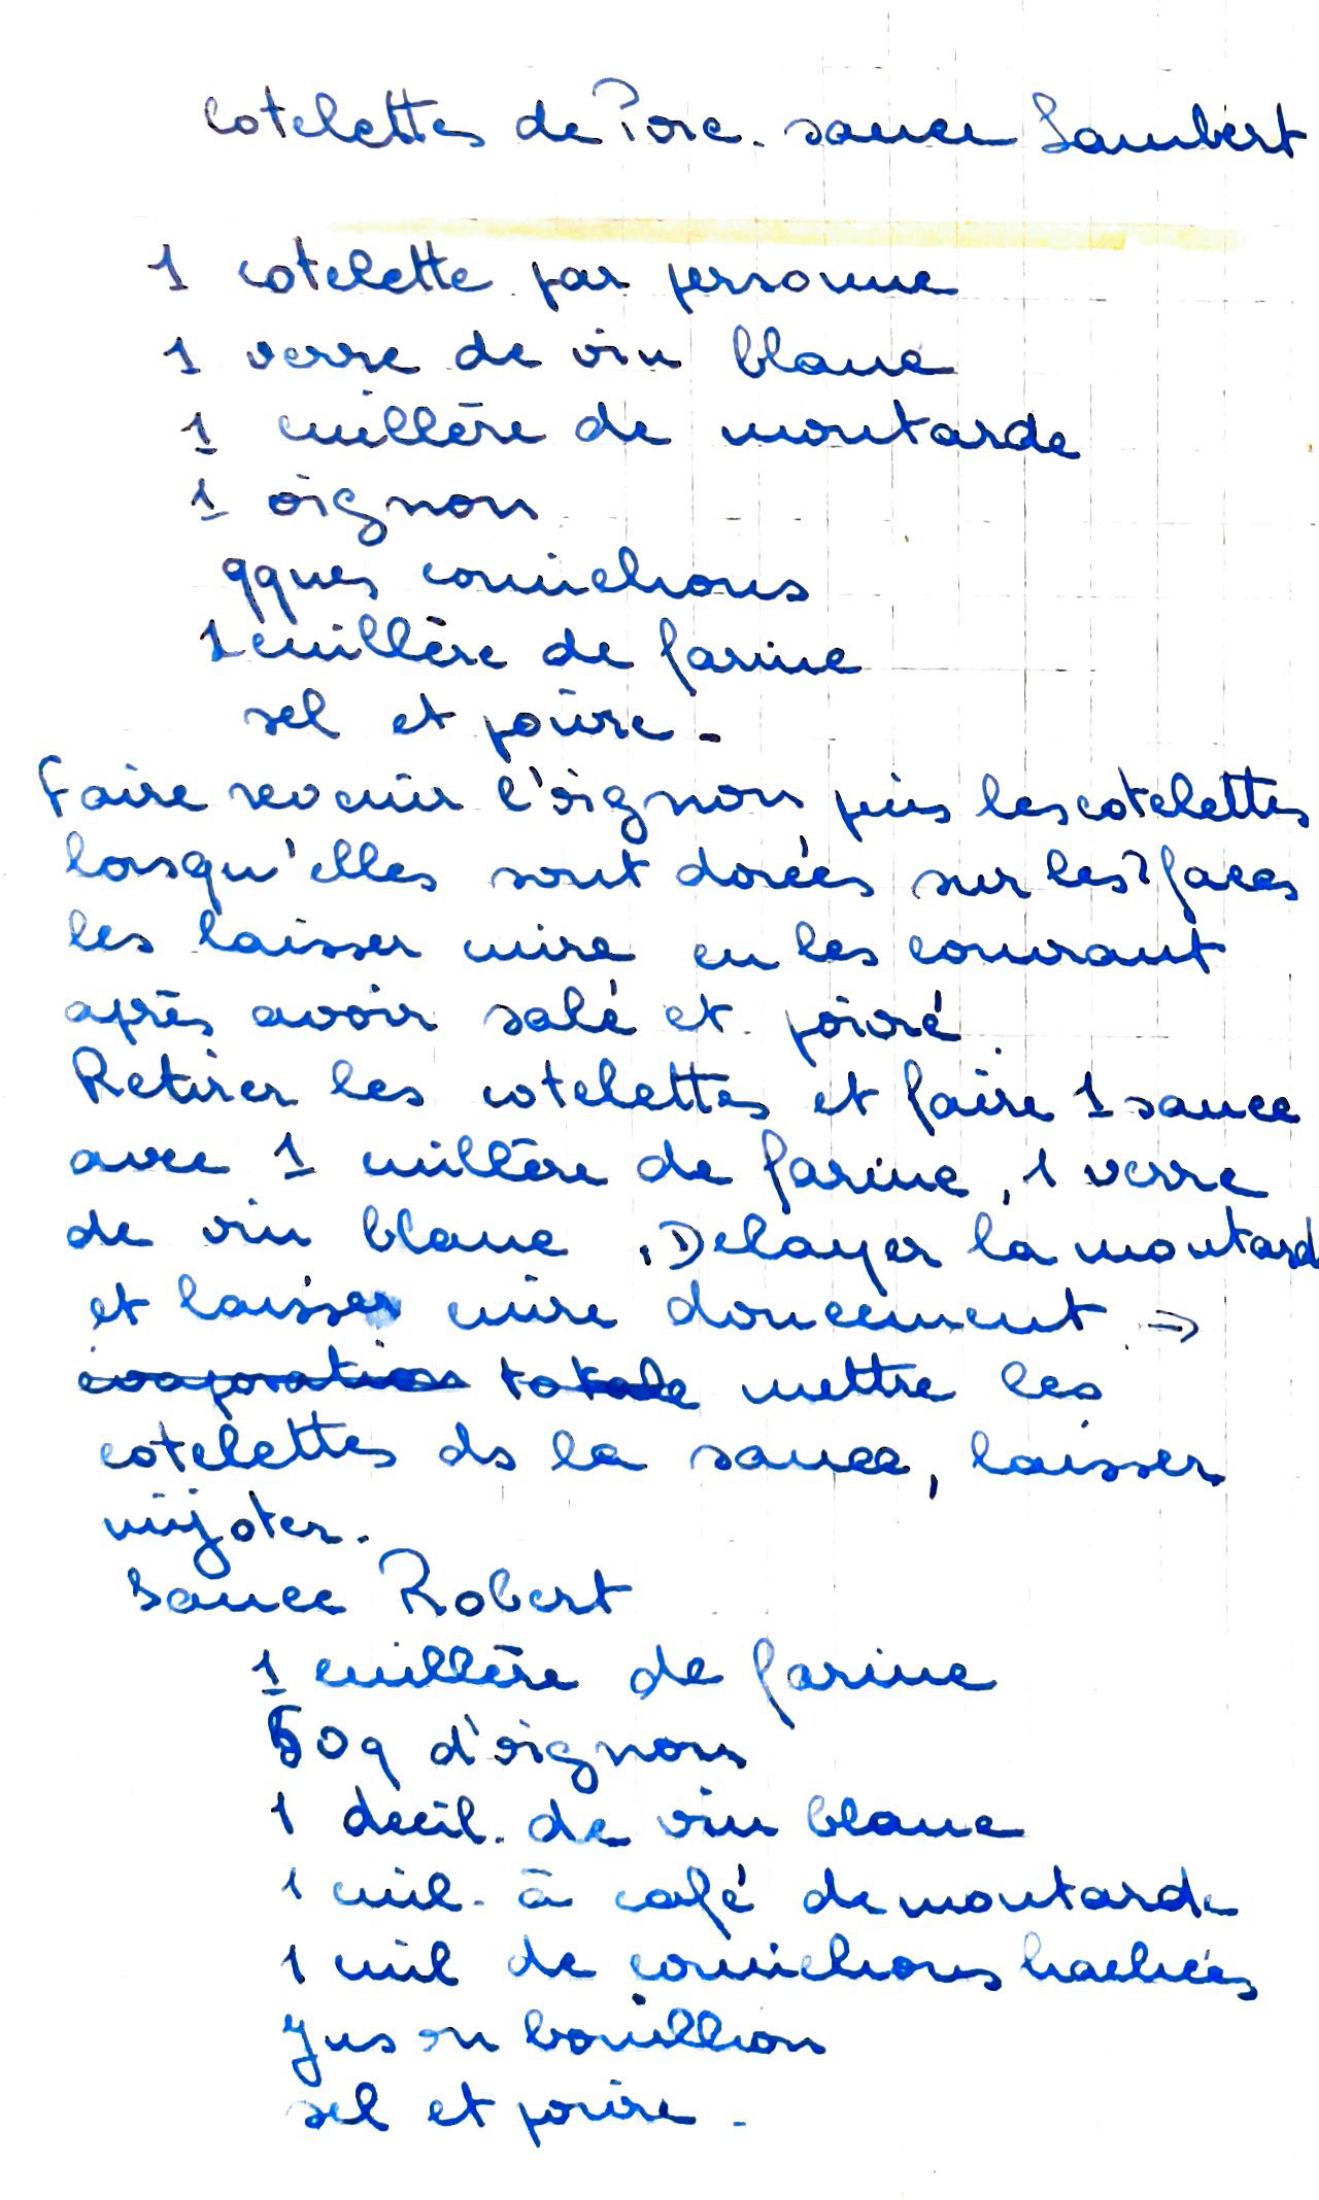 Cotelettes de Porc. sauce Lambert
1 cotelette par personne
1 verre de vin blanc
1 cuillère de moutarde
1 oignon
qques cornichons
1 cuillère de farine
sel et poivre -
Faire revenir l'oignon puis les cotelettes
lorsqu'elles sont dorées sur les 2 faces
les laisser cuire en les couvrant
après avoir salé et poivré.
Retirer les cotelettes et faire 1 sauce
avec 1 cuillère de farine, 1 verre
de vin blanc. Delayer la moutard
et laisser cuire doucement ⇒
evaporation totale mettre les
cotelettes ds la sauce, laisser
mijoter.
Sauce Robert
1 cuillère de farine
50g d'oignons
1 decil. de vin blanc
1 cuil. à café de moutarde
1 cuil de cornichons hachés
Jus ou bouillon
sel et poivre -